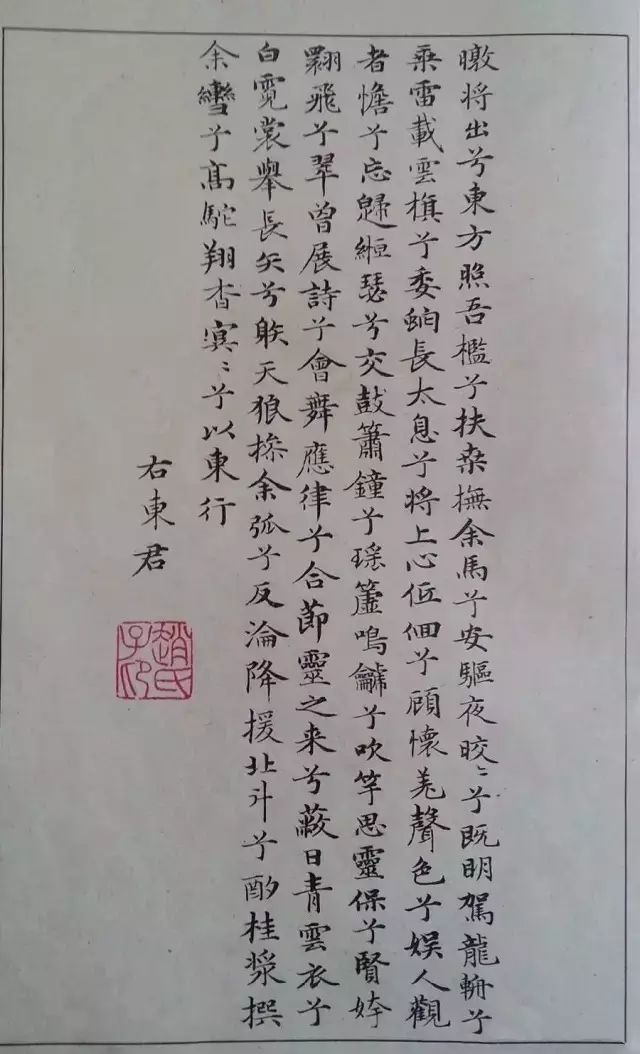 暾将出兮東方照吾檻兮扶桒撫余馬兮安驅夜晈〻兮既明駕龍輈兮
乗雷載雲旗兮委蛇長太息兮将上心低佪兮顧懷羌聲色兮娯人觀
者憺兮忘歸緪瑟兮交鼓簫鐘兮瑶簴鳴龥兮吹竽思靈保兮賢姱
翾飛兮翠曾展詩兮會舞應律兮合節靈之来兮蔽日青雲衣兮
白霓裳舉長矢兮䠶天狼摻余弧兮反淪降援北斗兮酌桂漿撰
余轡兮高駝翔杳冥〻兮以東行
右東君
趙氏子印